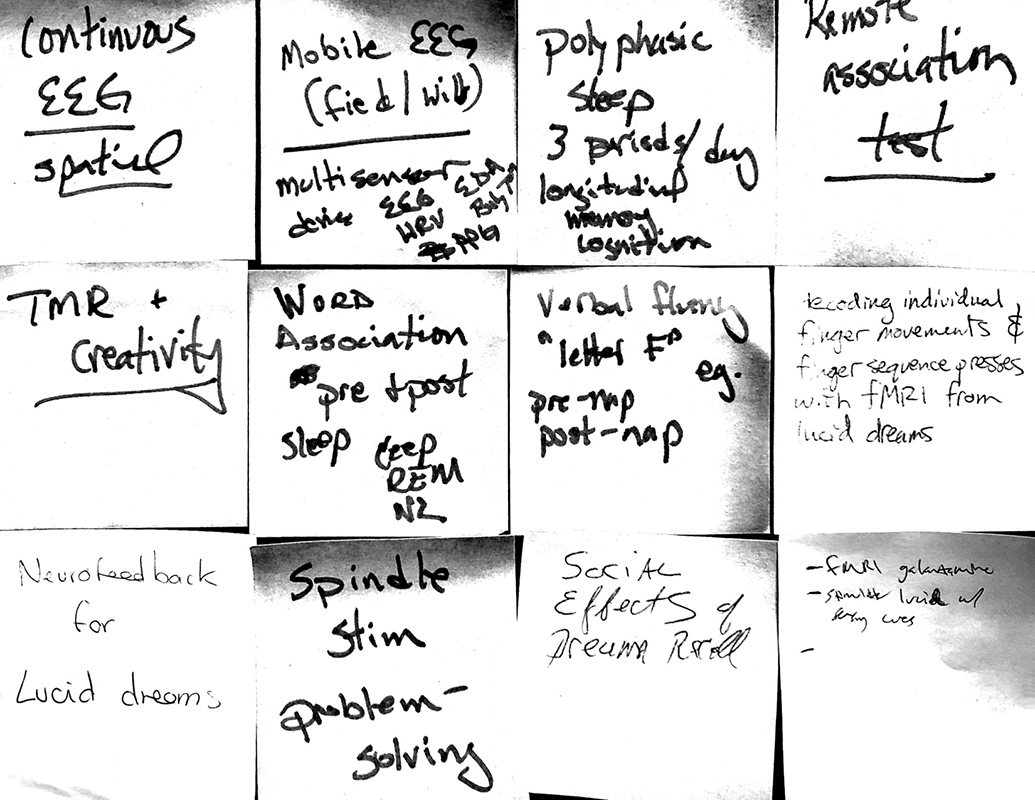 Continuous
EEG
spatial
Mobile EEG
(field/wild)
multisensor
device
EEG
EDA
HRV
Body T
PPG
Polyphasic
sleep
3 periods/day
longitudinal
memory
cognition
Remote
association
test
TMR +
creativity
WORD
Association
pre + post
sleep
deep
REM
N2
Verbal fluency
"letter F"
eg.
pre-nap
post-nap
decoding individual
finger movements &
finger sequence presses
with fMRI from
lucid dreams
Neurofeedback
for
Lucid dreams
Spindle
stim
problem-
solving
Social
Effects of
Dream Recall
- fMRI galantamine
- lucid w/
cues
-